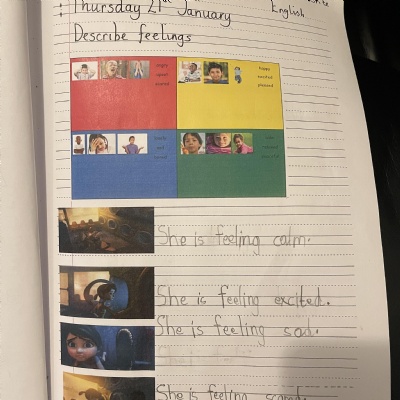 Thursday 21st January
English
Describe feelings
angry
upset
scared
happy
excited
pleased
sad
calm
relaxed
She is feeling calm.
She is feeling excited.
She is feeling sad.
She is feeling scared.